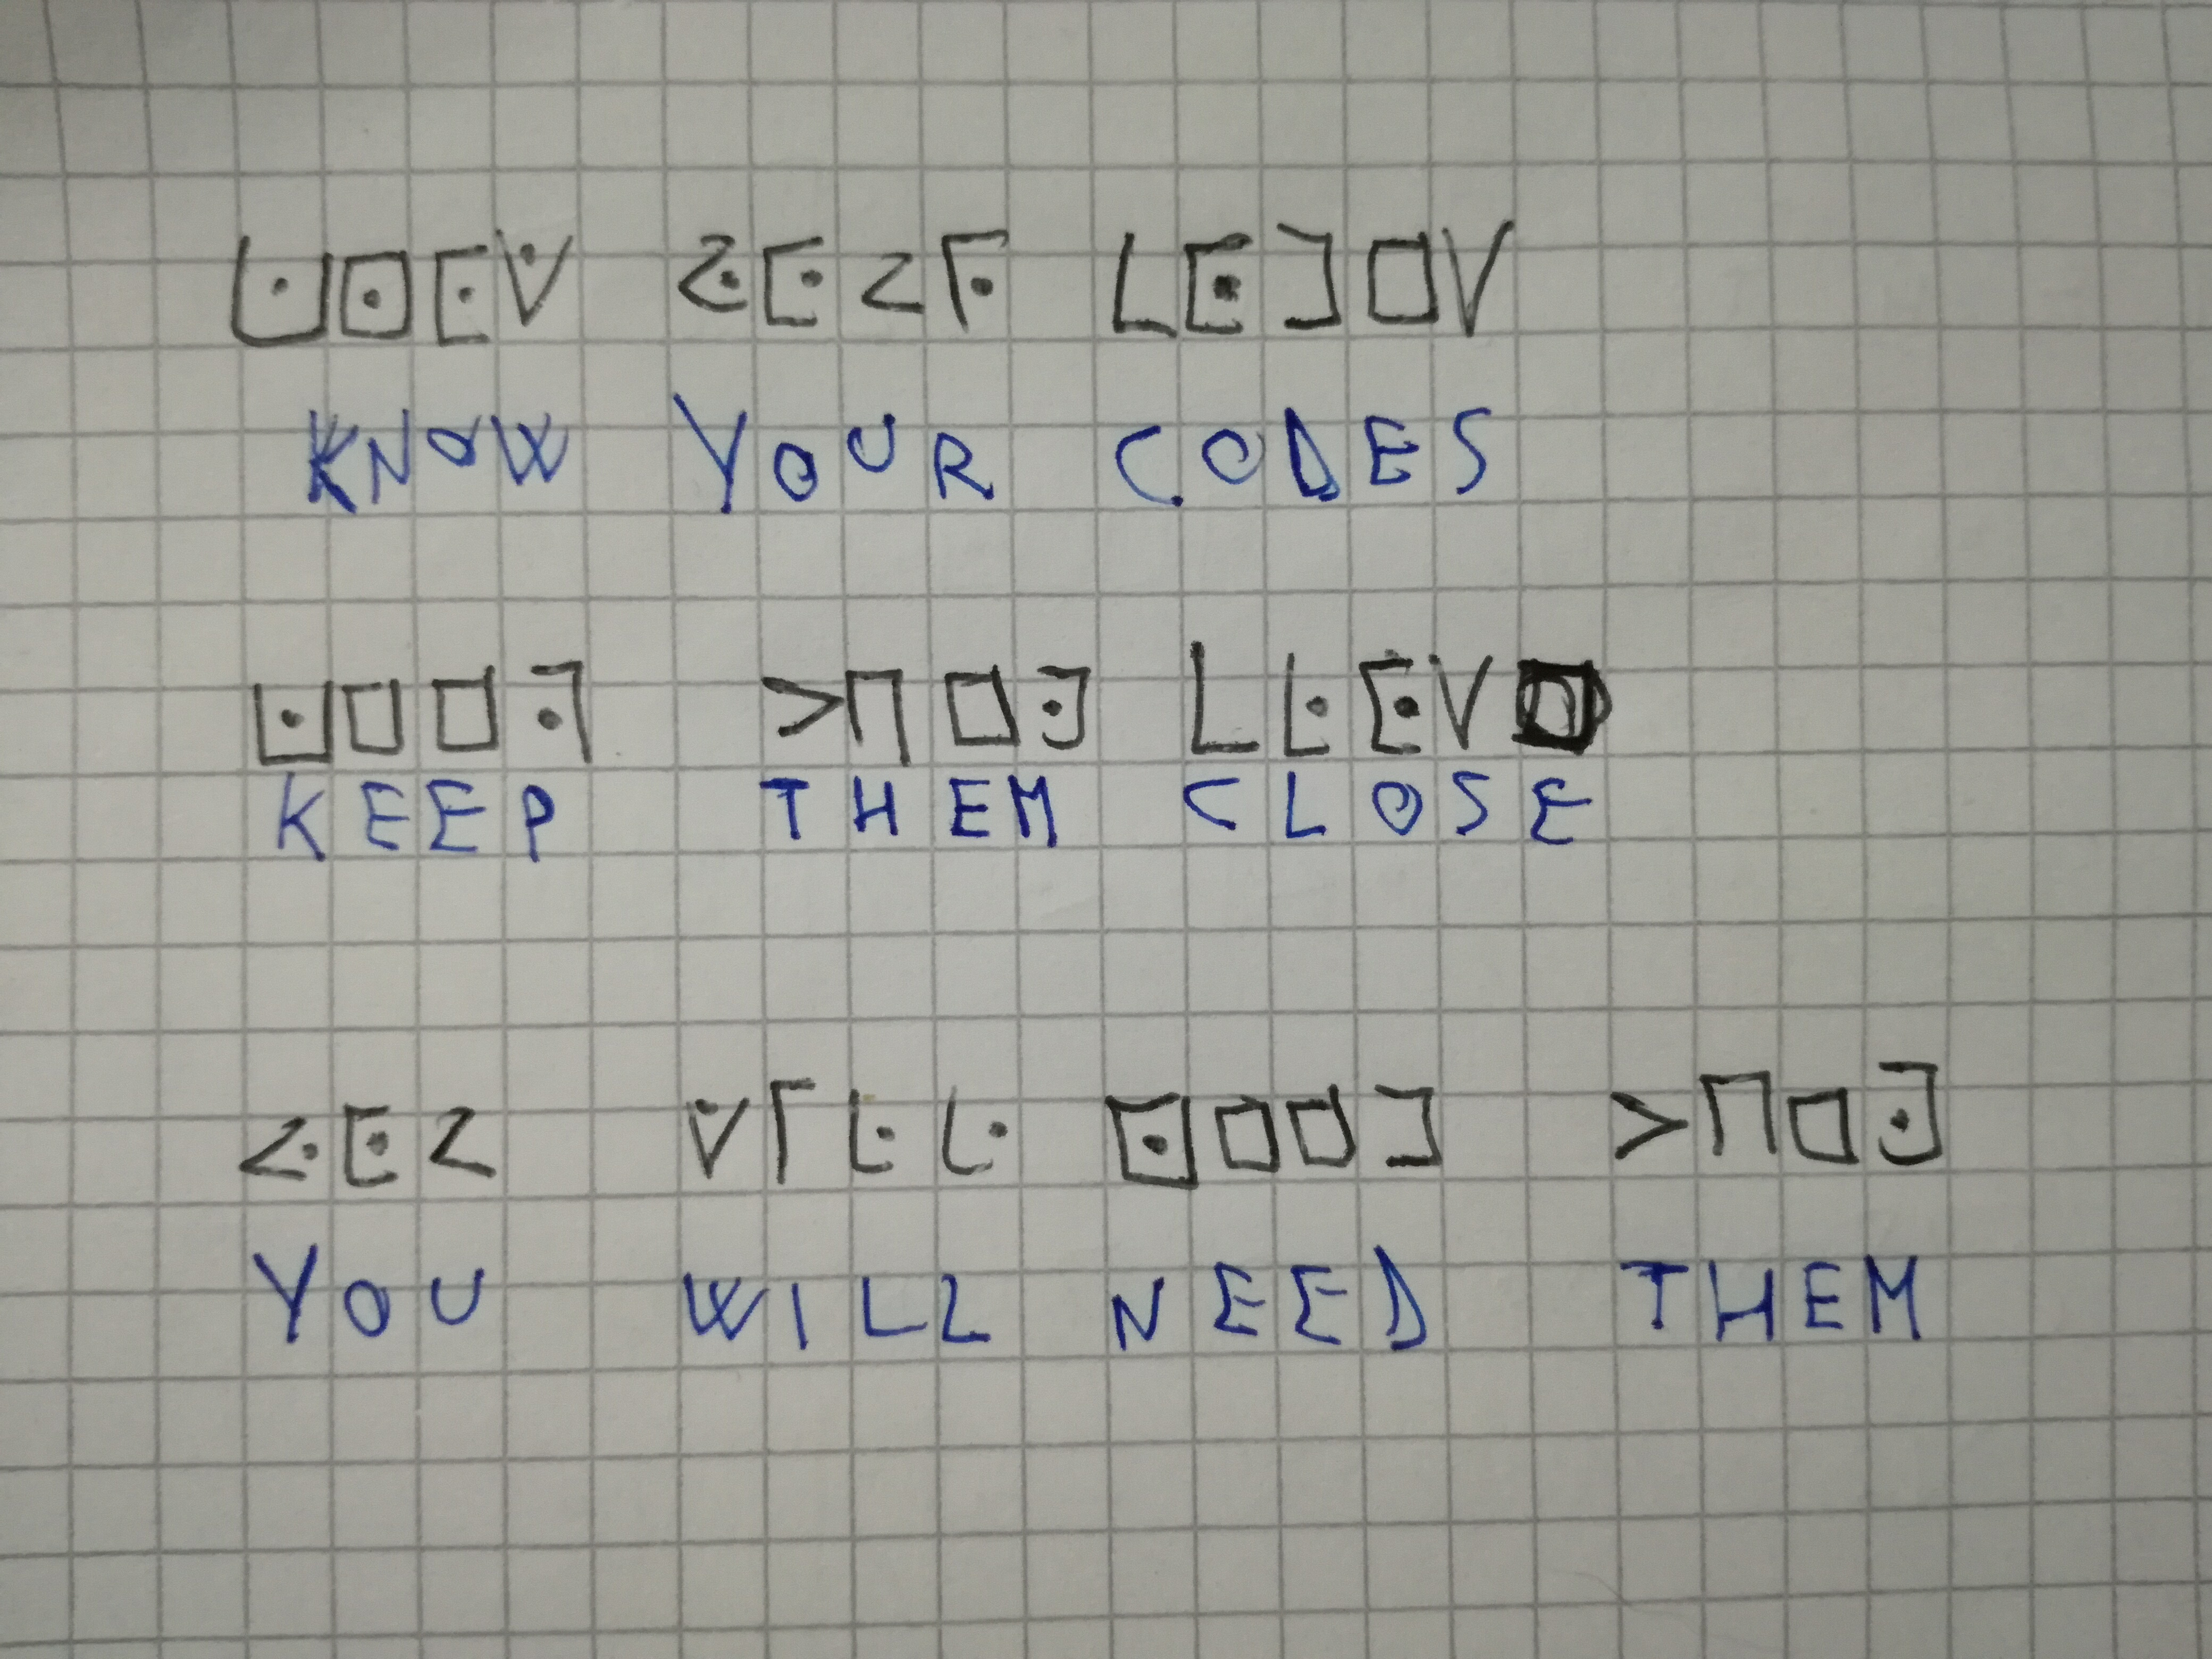 KNOW YOUR CODES
KEEP THEM CLOSE
YOU WILL NEED THEM